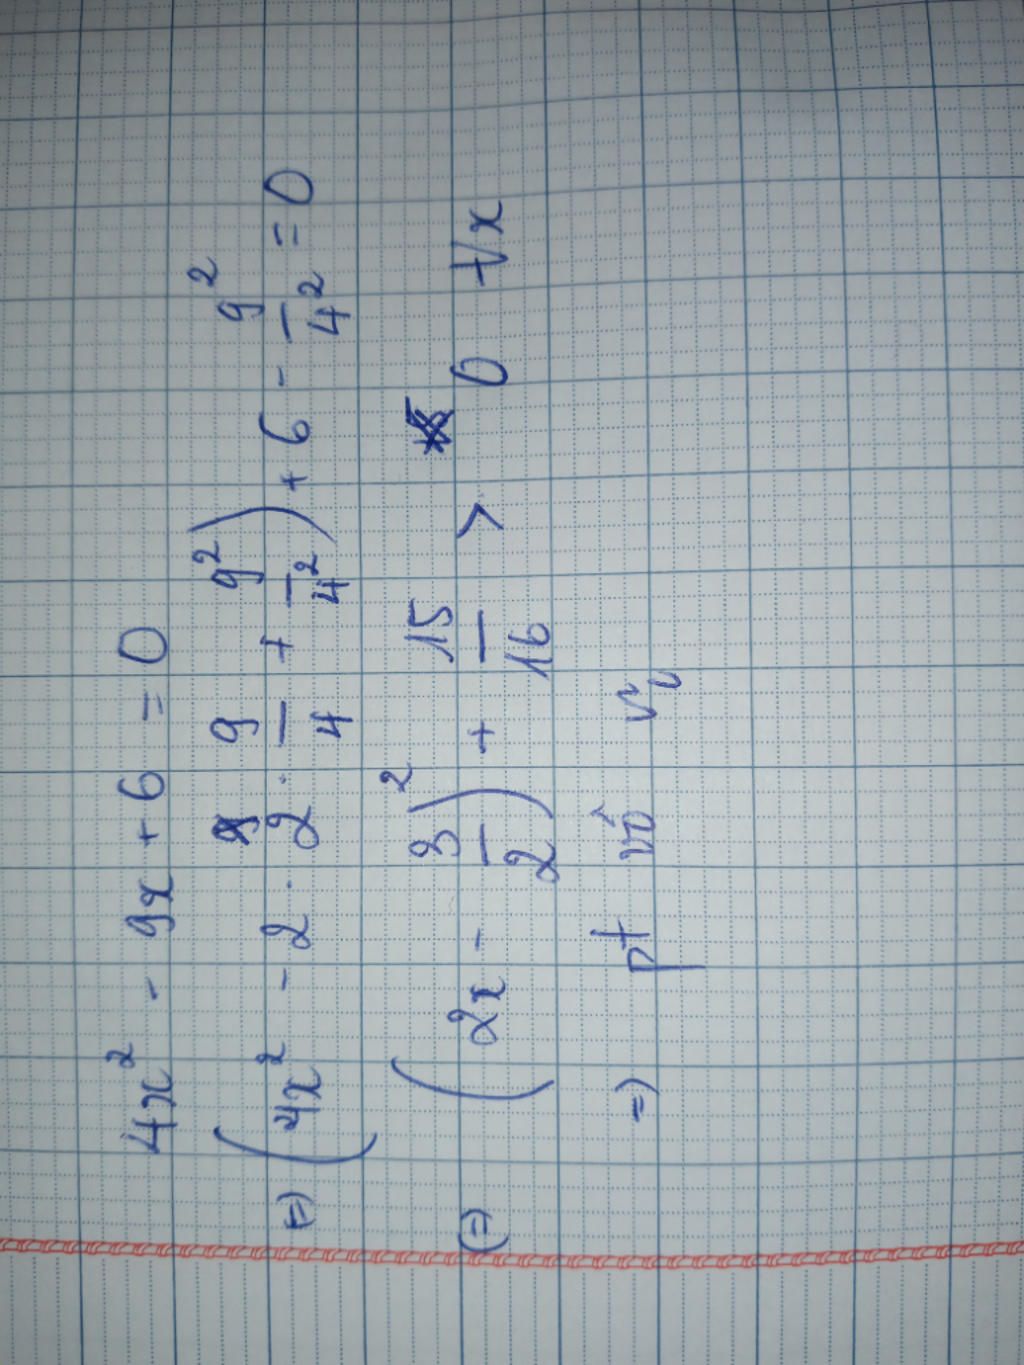 4x² - 9x + 6 = 0
⇔ (4x² - 2 . 2 . 9/4 + 9²/4²) + 6 - 9²/4² = 0
⇔ (2x - 3/2)² + 15/16 > 0 ∀x
⇒ pt vô